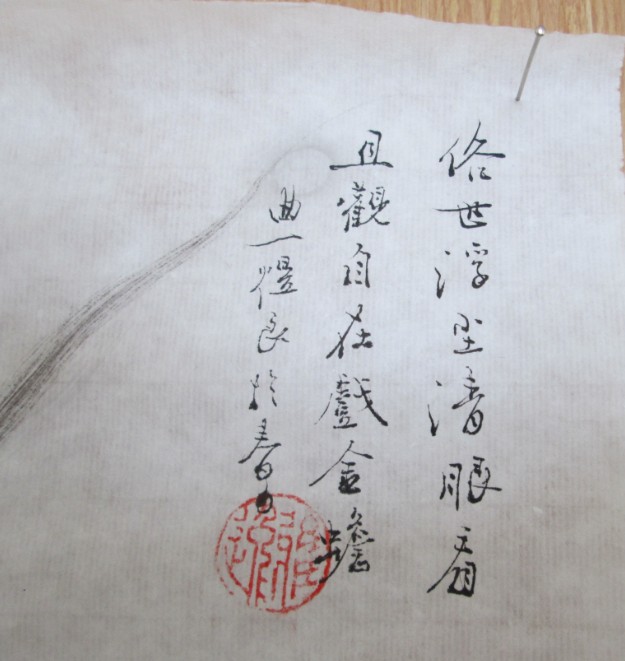 俗世浮尘清眼看
且觀自在戲金蟾
曲一良於春